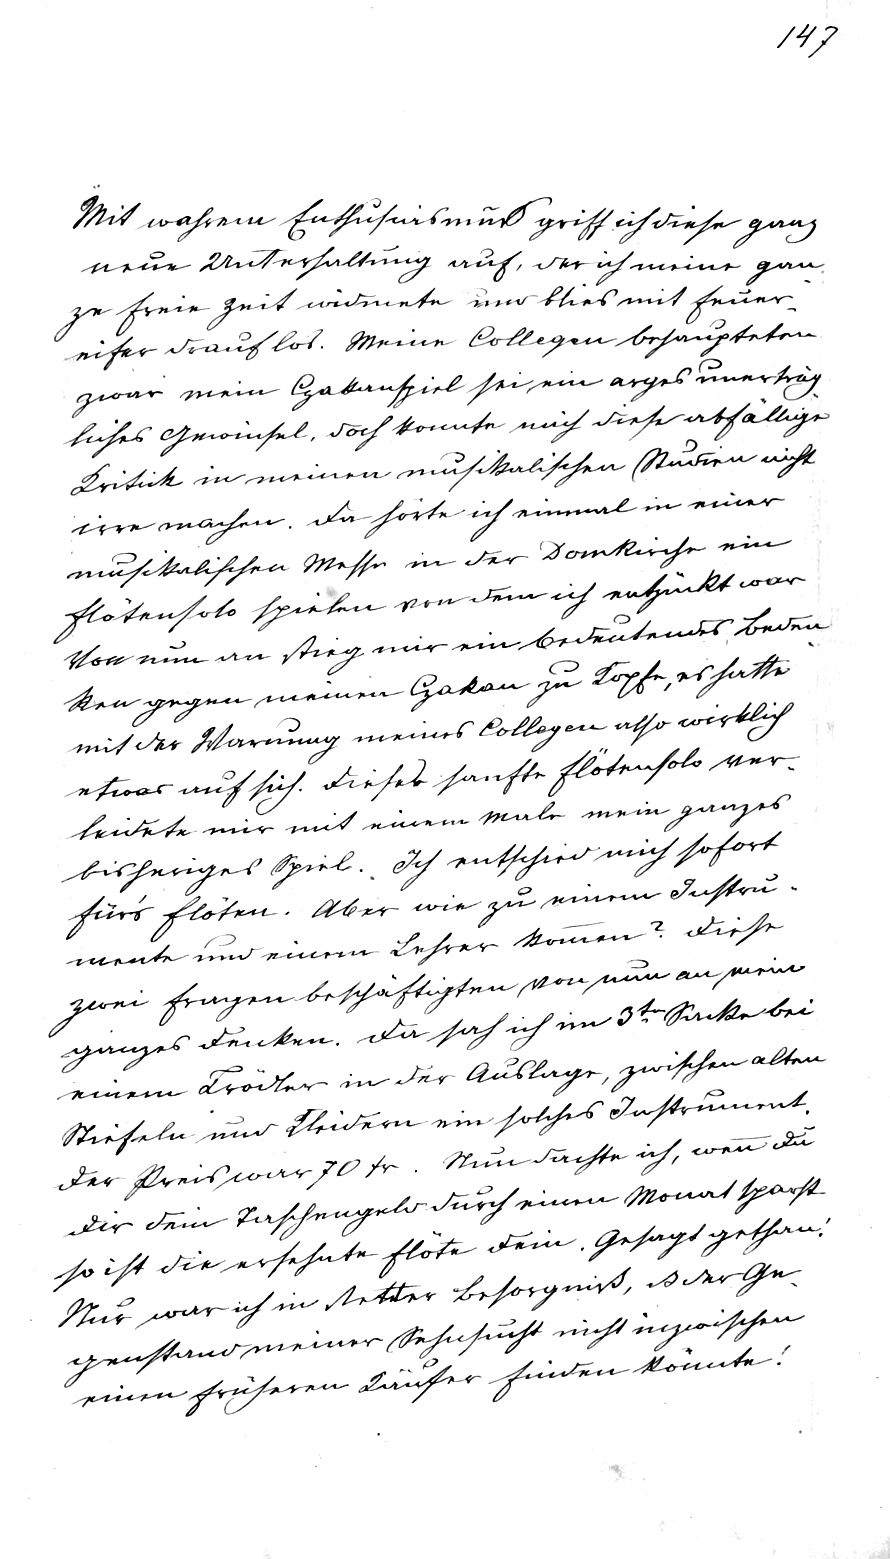 147
Mit wahrem Enthusiasmus griff ich diese ganz
neue Unterhaltung auf, der ich meine gan-
ze freie Zeit widmete und blies mit Feuer-
eifer drauf los. Meine Collegen behaupteten
zwar mein Czakanspiel sei ein arges unerträg
liches Gewinsel, doch konnte mich diese abfällige
Kritick in meinen musikalischen Studien nicht
irre machen. Da hörte ich einmal in einer
musikalischen Messe in der Domkirche ein
Flötensolo spielen von dem ich entzückt war
Von nun an stieg mir ein bedeutendes Beden
ken gegen meinen Czakan zu Kopfe, es hatte
mit der Warnung meines Collegen also wirklich
etwas auf sich. Dieses sanfte Flötensolo ver-
leidete mir mit einem Male mein ganzes
bisheriges Spiel. Ich entschied mich sofort
für's Flöten. Aber wie zu einem Instru-
mente und einem Lehrer kom̄en? Diese
zwei Fragen beschäftigten von nun an mein
ganzes Denken. Da sah ich im 3ten Sacke bei
einem Trödler in der Auslage, zwischen alten
Stiefeln und Kleidern ein solches Instrument.
Der Preis war 70 kr. Nun dachte ich, wen̄ Du
Dir dein Taschengeld durch einen Monat sparst
so ist die ersehnte Flöte Dein. Gesagt gethan!
Nur war ich in steter Besorgniß, ß der Ge-
genstand meiner Sehnsucht nicht inzwischen
einen früheren Käufer finden könnte!